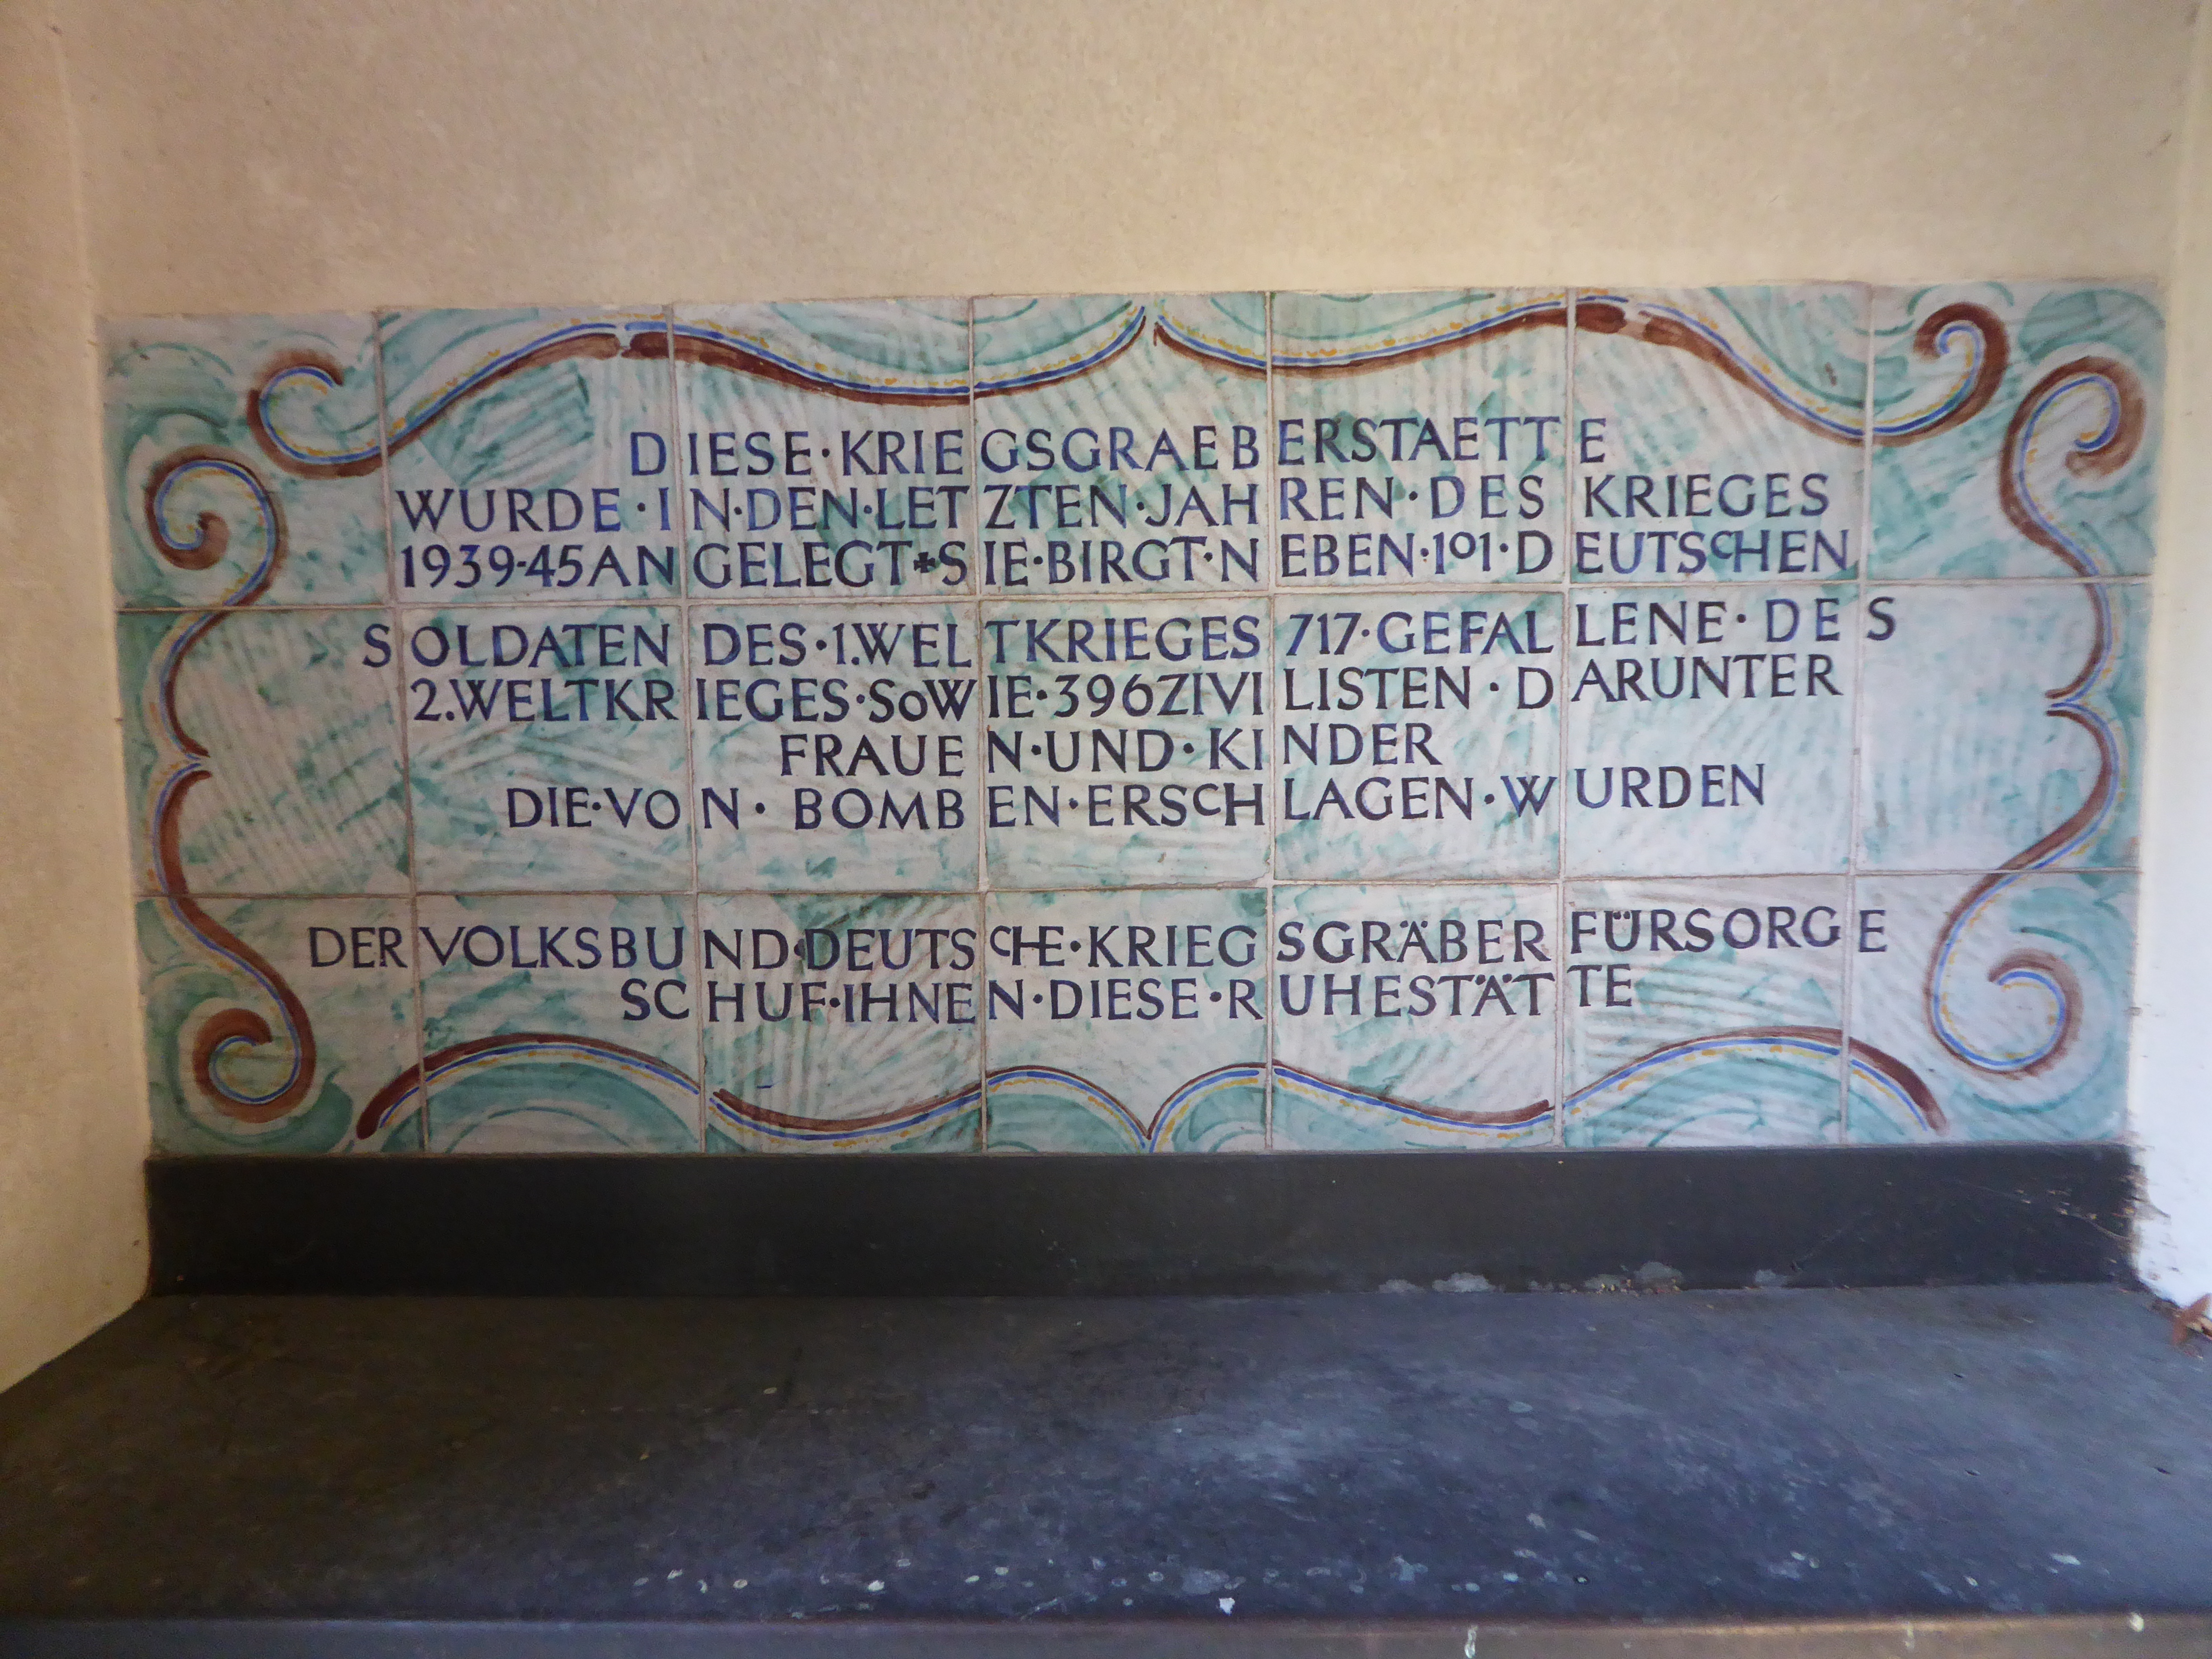 DIESE·KRIEGSGRAEBERSTAETTE
WURDE·IN·DEN·LETZTEN·JAHREN·DES KRIEGES
1939-45 ANGELEGT+SIE·BIRGT·NEBEN·101·DEUTSCHEN
SOLDATEN DES·1.WELTKRIEGES 717·GEFALLENE·DES
2.WELTKRIEGES·SOWIE·396 ZIVILISTEN·DARUNTER
FRAUEN·UND·KINDER
DIE·VON·BOMBEN·ERSCHLAGEN·WURDEN
DER VOLKSBUND·DEUTSCHE·KRIEGSGRÄBERFÜRSORGE
SCHUF·IHNEN·DIESE·RUHESTÄTTE